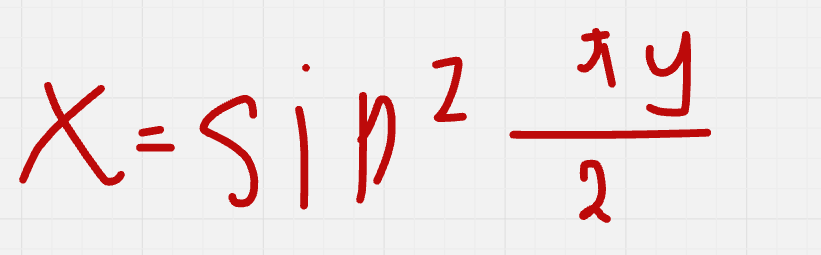 x = sin² πy/2